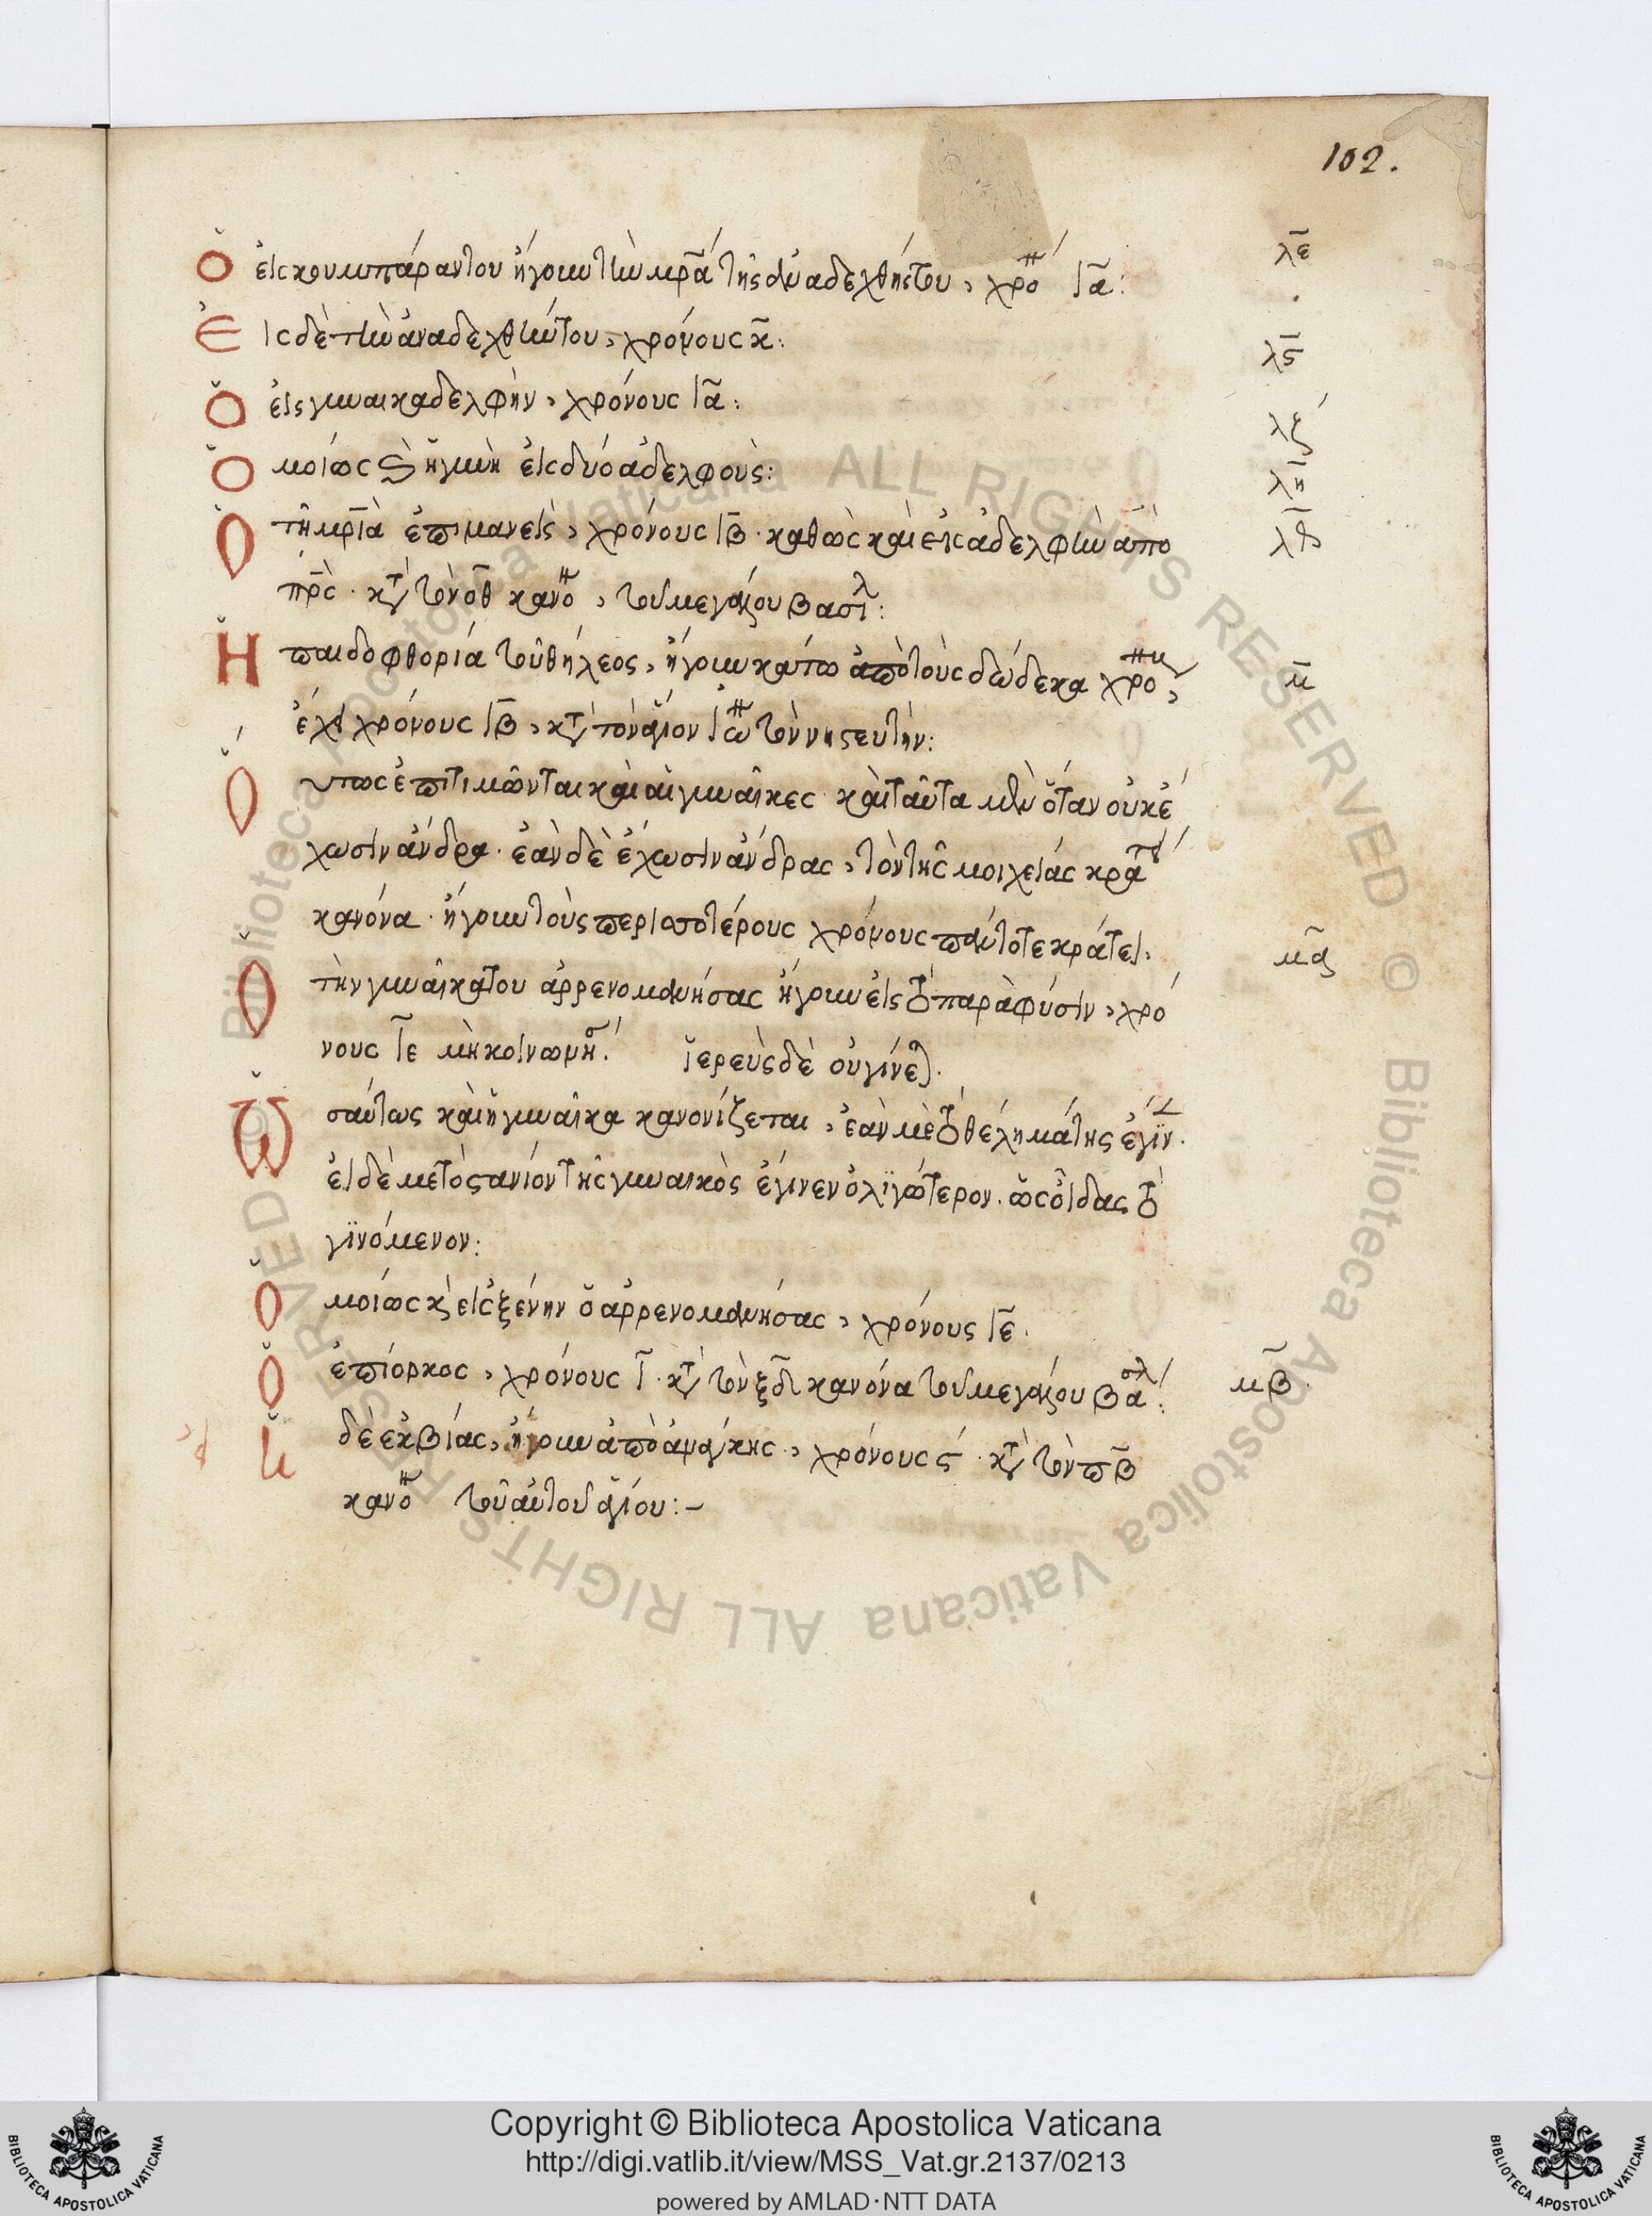 102.
Ὁ εἰς κουμπάραν του ἤγουν τὴν μρ̃α τῆς ἀναδεχθῆς του, χρόν ια̃: λε̃
Εἰς δὲ τὴν ἀναδεχθήν του, χρόνους κ̃: λϛ̃
Ὁ εἰς γυναικαδελφὴν, χρόνους ια̃: λζ
Ὁμοίως καὶ ἡ γυνὴ εἰς δύο ἀδελφοὺς: λη̃
Ὁ τῆ μρ̃ια ἐπιμανεὶς, χρόνους ιβ̃. καθὼς καὶ εἰς ἀδελφὴν ἀπὸ λθ
πρ̃ς. κατὰ τὸν οθ̃ κανό, τοῦ μεγάλου βασιλ:
Ἡ παιδοφθορία τοῦ θήλεος, ἤγουν κάτω ἀπὸ τοὺς δώδεκα χρό, μ̃
ἔχει χρόνους ιβ̃, κατὰ τὸν ἅγιον ἰω τὸν νηστευτήν:
Ὅυπως ἐπιτιμῶνται καὶ αἱ γυναῖκες. καὶ ταῦτα μὲν ὅταν οὐκ ἔ
χωσιν ἄνδρα. ἐὰν δὲ ἔχωσιν ἄνδρας, τὸν τῆς μοιχείας κρατ
κανόνα. ἤγουν τοὺς περισσοτέρους χρόνους πάντοτε κράτει.
Ὁ τὴν γυναῖκα του ἀρρενομανήσας ἤγουν εἰς τὸ παρὰ φύσιν, χρό μα̃
νους ιε̃ μὴ κοινωνη. ἱερεὺς δὲ οὐ γίνεται.
Ὡσαύτως καὶ ἡ γυναῖκα κανονίζεται, ἐὰν μὲ τὸ θέλημά της ἐγίν.
εἰ δὲ μετὸ στανιόν τῆς γυναικὸς ἐγίνεν ὀλιγώτερον. ὡς οἶδας τὸ
γινόμενον:
Ὁμοίως καὶ εἰς ξένην ὁ ἀρρενομανήσας, χρόνους ιε̃.
Ὁ ἐπίορκος, χρόνους ι̃. κατὰ τὸν ξδ̃ κανόνα τοῦ μεγάλου βασλ: μβ̃.
Εἰ δὲ ἐκ βίας, ἤγουν ἀπὸ ἀνάγκης, χρόνους ϛ. κατὰ τὸν πβ̃
κανό τοῦ αὐτοῦ ἁγίου:-
Copyright © Biblioteca Apostolica Vaticana
http://digi.vatlib.it/view/MSS_Vat.gr.2137/0213
powered by AMLAD·NTT DATA
BIBLIOTECA APOSTOLICA VATICANA
BIBLIOTECA APOSTOLICA VATICANA
© Biblioteca Apostolica Vaticana ALL RIGHTS RESERVED © Biblioteca Apostolica Vaticana ALL RIGHTS RESERVED